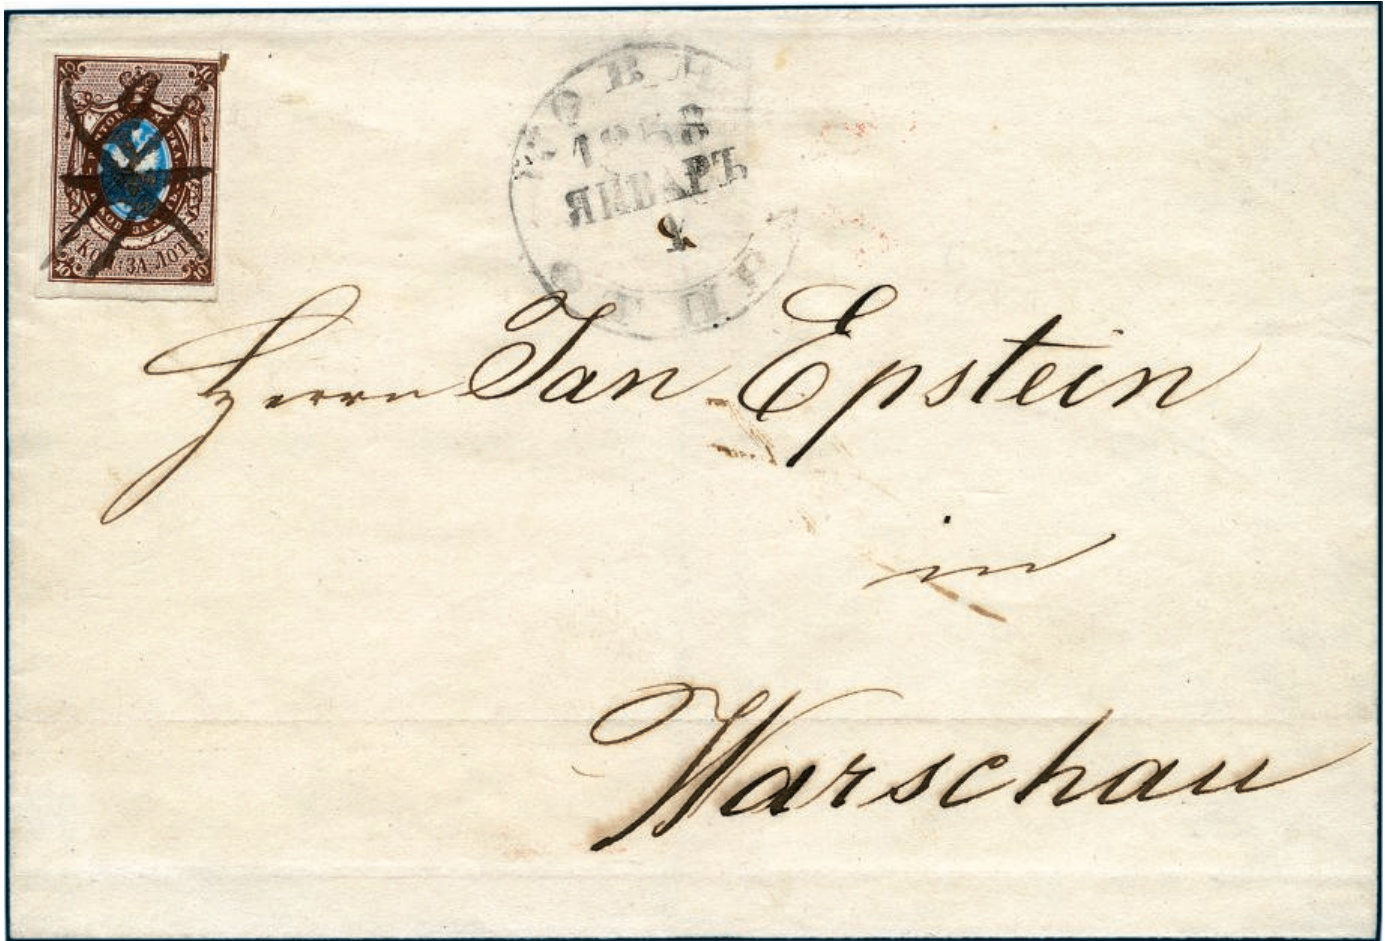 10 10
КОП: ЗА ЛОТЪ
10 10
1858
ЯНВАРЬ
4
Herrn Jan Epstein
in
Warschau